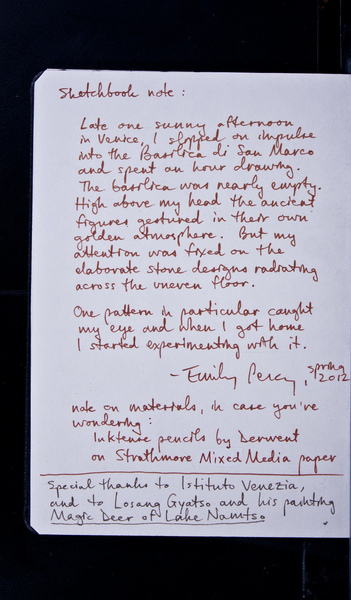 Sketchbook note:
Late one sunny afternoon
in Venice, I slipped on impulse
into the Basilica di San Marco
and spent an hour drawing.
The basilica was nearly empty.
High above my head the ancient
figures gestured in their own
golden atmosphere. But my
attention was fixed on the
elaborate stone designs radiating
across the uneven floor.
One pattern in particular caught
my eye and when I got home
I started experimenting with it.
- Emily Percy, spring 2012
note on materials, in case you're
wondering:
Inktense pencils by Derwent
on Strathmore Mixed Media paper
Special thanks to Istituto Venezia,
and to Losang Gyatso and his painting
Magic Deer of Lake Namtso.